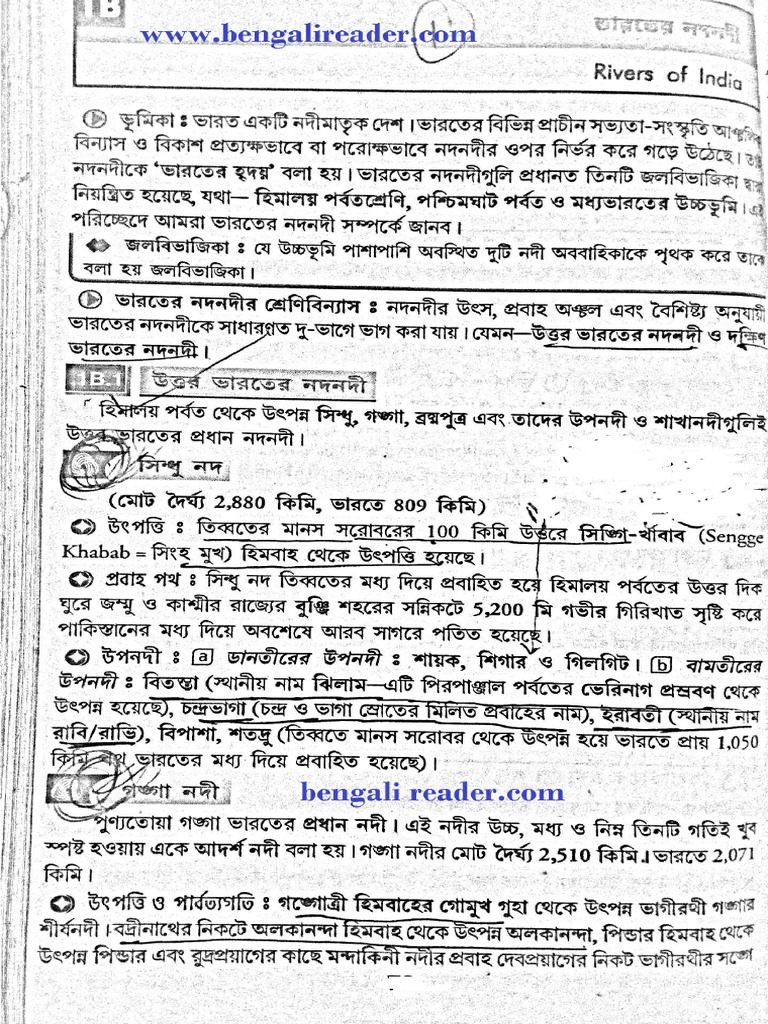 1B
www.bengalireader.com
ভারতের নদনদী
Rivers of India
ভূমিকা : ভারত একটি নদীমাতৃক দেশ। ভারতের বিভিন্ন প্রাচীন সভ্যতা-সংস্কৃতি
বিন্যাস ও বিকাশ প্রত্যক্ষভাবে বা পরোক্ষভাবে নদনদীর ওপর নির্ভর করে গড়ে উঠেছে।
নদনদীকে 'ভারতের হৃদয়' বলা হয়। ভারতের নদনদীগুলি প্রধানত তিনটি জলবিভাজিকা দ্বারা
নিয়ন্ত্রিত হয়েছে, যথা— হিমালয় পর্বতশ্রেণি, পশ্চিমঘাট পর্বত ও মধ্যভারতের উচ্চভূমি। এই
পরিচ্ছেদে আমরা ভারতের নদনদী সম্পর্কে জানব।
জলবিভাজিকা : যে উচ্চভূমি পাশাপাশি অবস্থিত দুটি নদী অববাহিকাকে পৃথক করে তাকে
বলা হয় জলবিভাজিকা।
ভারতের নদনদীর শ্রেণিবিন্যাস : নদনদীর উৎস, প্রবাহ অঞ্চল এবং বৈশিষ্ট্য অনুযায়ী
ভারতের নদনদীকে সাধারণত দু-ভাগে ভাগ করা যায়। যেমন—উত্তর ভারতের নদনদী ও দক্ষিণ
ভারতের নদনদী।
1B.1 উত্তর ভারতের নদনদী
হিমালয় পর্বত থেকে উৎপন্ন সিন্ধু, গঙ্গা, ব্রহ্মপুত্র এবং তাদের উপনদী ও শাখানদীগুলিই
উত্তর ভারতের প্রধান নদনদী।
সিন্ধু নদ
(মোট দৈর্ঘ্য 2,880 কিমি, ভারতে 809 কিমি)
উৎপত্তি : তিব্বতের মানস সরোবরের 100 কিমি উত্তরে সিঙ্গি-খাবাব (Sengge
Khabab = সিংহ মুখ) হিমবাহ থেকে উৎপত্তি হয়েছে।
প্রবাহ পথ : সিন্ধু নদ তিব্বতের মধ্য দিয়ে প্রবাহিত হয়ে হিমালয় পর্বতের উত্তর দিক
ঘুরে জম্মু ও কাশ্মীর রাজ্যের বুঞ্জি শহরের সন্নিকটে 5,200 মি গভীর গিরিখাত সৃষ্টি করে
পাকিস্তানের মধ্য দিয়ে অবশেষে আরব সাগরে পতিত হয়েছে।
উপনদী : a ডানতীরের উপনদী : শায়ক, শিগার ও গিলগিট। b বামতীরের
উপনদী : বিতস্তা (স্থানীয় নাম ঝিলাম—এটি পিরপাঞ্জাল পর্বতের ভেরিনাগ প্রস্রবণ থেকে
উৎপন্ন হয়েছে), চন্দ্রভাগা (চন্দ্র ও ভাগা স্রোতের মিলিত প্রবাহের নাম), ইরাবতী (স্থানীয় নাম
রাবি/রাভি), বিপাশা, শতদ্রু (তিব্বতে মানস সরোবর থেকে উৎপন্ন হয়ে ভারতে প্রায় 1,050
কিমি পথ ভারতের মধ্য দিয়ে প্রবাহিত হয়েছে)।
গঙ্গা নদী
bengali reader.com
পুণ্যতোয়া গঙ্গা ভারতের প্রধান নদী। এই নদীর উচ্চ, মধ্য ও নিম্ন তিনটি গতিই খুব
স্পষ্ট হওয়ায় একে আদর্শ নদী বলা হয়। গঙ্গা নদীর মোট দৈর্ঘ্য 2,510 কিমি। ভারতে 2,071
কিমি।
উৎপত্তি ও পার্বত্যগতি : গঙ্গোত্রী হিমবাহের গোমুখ গুহা থেকে উৎপন্ন ভাগীরথী গঙ্গার
শীর্ষনদী। বদ্রীনাথের নিকটে অলকানন্দা হিমবাহ থেকে উৎপন্ন অলকানন্দা, পিন্ডার হিমবাহ থেকে
উৎপন্ন পিন্ডার এবং রুদ্রপ্রয়াগের কাছে মন্দাকিনী নদীর প্রবাহ দেবপ্রয়াগের নিকট ভাগীরথীর সঙ্গে